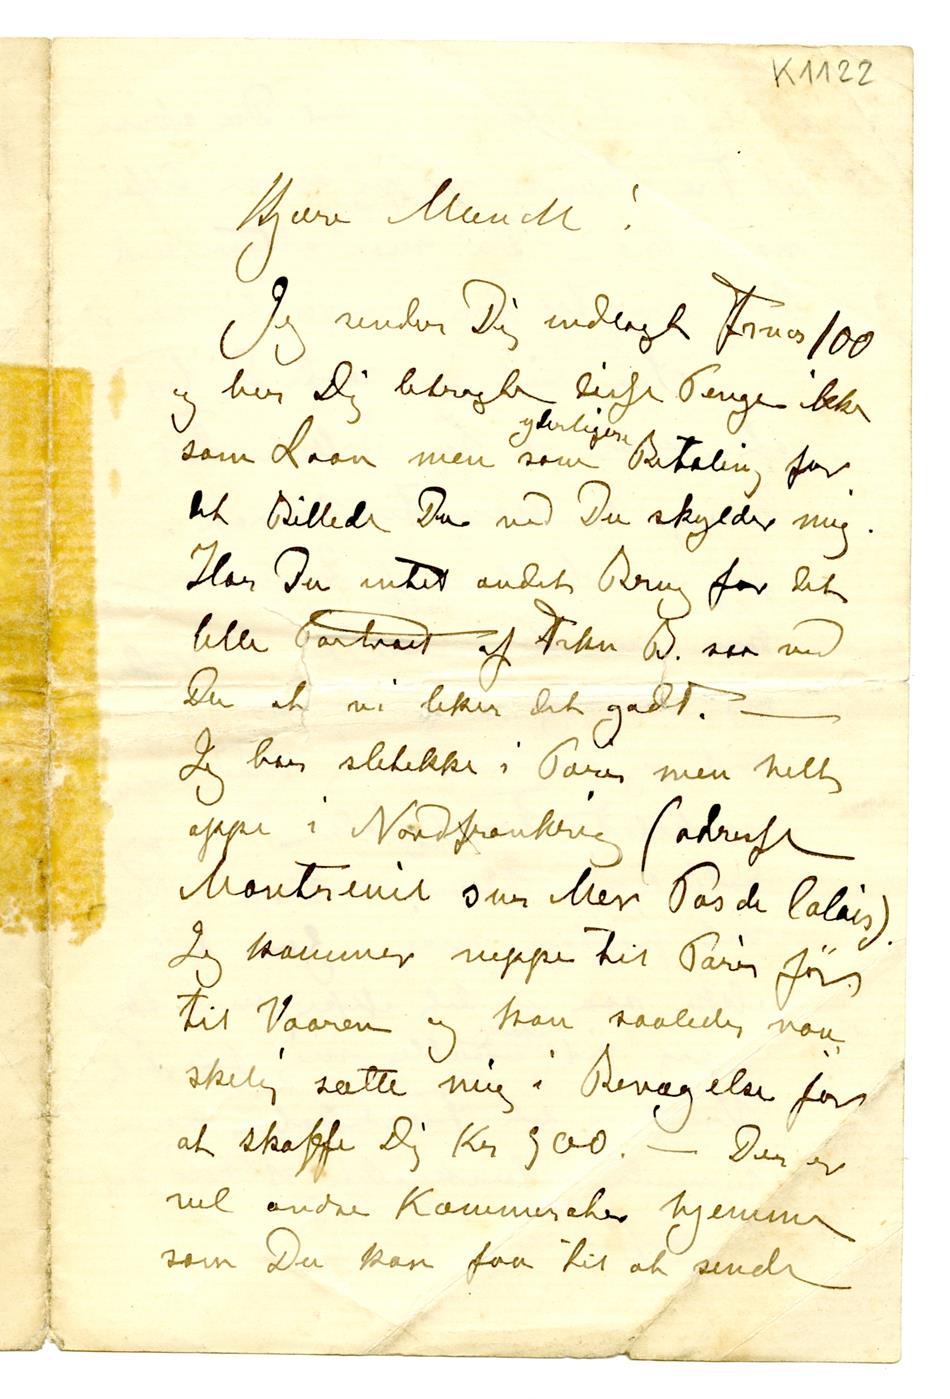 K1122
Kjære Munch!
Jeg sender Dig indlagt Frncs 100
og ber Dig betragte disse Penge ikke
som Laan men som yderligere Betaling for
det Billede Du ved Du skylder mig.
Har Du intet andet Brug for det
lille Portræt af Frkn B. saa ved
Du at vi liker det godt. —
Jeg bor sletikke i Paris men helt
oppe i Nordfrankrig (adresse
Montreuil sur Mer Pas de Calais).
Jeg kommer neppe til Paris før
til Vaaren og kan saaledes van
skelig sætte mig i Bevægelse for
at skaffe Dig Kr 900. — Der er
vel andre Kammerater hjemme
som Du kan faa til at sende